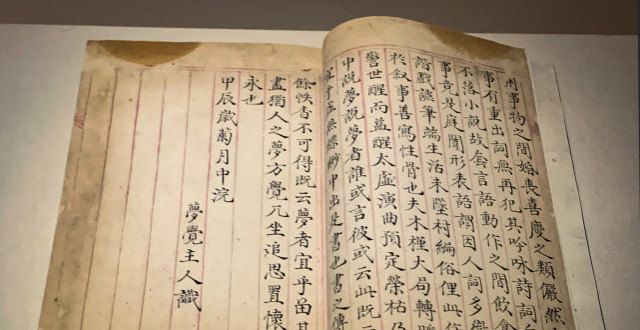 用事物之間婚喪喜慶之類儼然
事有重出詞無再犯其吟咏詩詞自
不落小說故套言語動作之間飲食
事竟是庭闈形表語謂因人詞多徹
諧戲謔筆端生活未墜村編俗俚此作
於敘事善寫性骨也夫木槿大局轉瞬
警世醒而益醒太虛演曲預定榮枯乃
中說夢說夢者誰或言彼或云此既云
宜乎虛無縹緲中出是書也書之傳
餘帙杳不可得既云夢者宜乎留其
盡猶人之夢方覺兀坐追思置懷
永也
甲辰歲菊月中浣
夢覺主人識